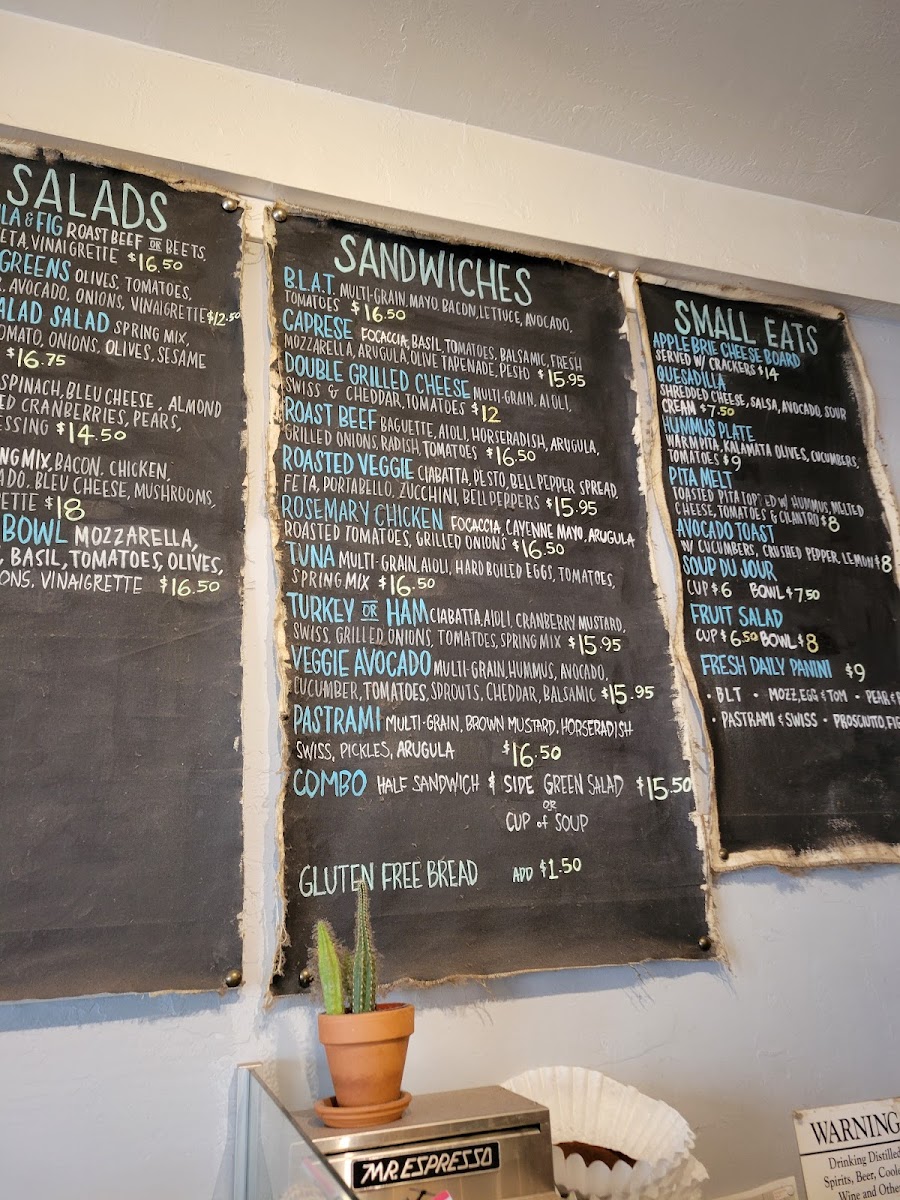 SALADS
LA & FIG ROAST BEEF OR BEETS,
ETA, VINAIGRETTE $16.50
GREENS OLIVES, TOMATOES,
AVOCADO, ONIONS, VINAIGRETTE $12.50
ALAD SALAD SPRING MIX,
OMATO, ONIONS, OLIVES, SESAME
$16.75
SPINACH, BLEU CHEESE, ALMOND
ED CRANBERRIES, PEARS,
ESSING $14.50
NG MIX, BACON, CHICKEN,
ADO, BLEU CHEESE, MUSHROOMS,
ETTE $18
BOWL MOZZARELLA,
BASIL, TOMATOES, OLIVES,
ONS, VINAIGRETTE $16.50
SANDWICHES
B.L.A.T. MULTI-GRAIN, MAYO, BACON, LETTUCE, AVOCADO,
TOMATOES $16.50
CAPRESE FOCACCIA, BASIL, TOMATOES, BALSAMIC, FRESH
MOZZARELLA, ARUGULA, OLIVE TAPENADE, PESTO $15.95
DOUBLE GRILLED CHEESE MULTI-GRAIN, AIOLI,
SWISS & CHEDDAR, TOMATOES $12
ROAST BEEF BAGUETTE, AIOLI, HORSERADISH, ARUGULA,
GRILLED ONIONS, RADISH, TOMATOES $16.50
ROASTED VEGGIE CIABATTA, PESTO, BELL PEPPER SPREAD,
FETA, PORTABELLO, ZUCCHINI, BELL PEPPERS $15.95
ROSEMARY CHICKEN FOCACCIA, CAYENNE MAYO, ARUGULA
ROASTED TOMATOES, GRILLED ONIONS $16.50
TUNA MULTI-GRAIN, AIOLI, HARD BOILED EGGS, TOMATOES,
SPRING MIX $16.50
TURKEY OR HAM CIABATTA, AIOLI, CRANBERRY MUSTARD,
SWISS, GRILLED ONIONS, TOMATOES, SPRING MIX $15.95
VEGGIE AVOCADO MULTI-GRAIN, HUMMUS, AVOCADO,
CUCUMBER, TOMATOES, SPROUTS, CHEDDAR, BALSAMIC $15.95
PASTRAMI MULTI-GRAIN, BROWN MUSTARD, HORSERADISH
SWISS, PICKLES, ARUGULA $16.50
COMBO HALF SANDWICH & SIDE GREEN SALAD $15.50
OR
CUP of SOUP
GLUTEN FREE BREAD ADD $1.50
SMALL EATS
APPLE BRIE CHEESE BOARD
SERVED W/ CRACKERS $14
QUESADILLA
SHREDDED CHEESE, SALSA, AVOCADO, SOUR
CREAM $7.50
HUMMUS PLATE
WARM PITA, KALAMATA OLIVES, CUCUMBERS,
TOMATOES $9
PITA MELT
TOASTED PITA TOPPED W/ HUMMUS, MELTED
CHEESE, TOMATOES & CILANTRO $8
AVOCADO TOAST
W/ CUCUMBERS, CRUSHED PEPPER, LEMON $8
SOUP DU JOUR
CUP $6 BOWL $7.50
FRUIT SALAD
CUP $6.50 BOWL $8
FRESH DAILY PANINI $9
• BLT • MOZZ, EGG & TOM • PEAR &
• PASTRAMI & SWISS • PROSCIUTTO, FIG
MR. ESPRESSO
WARNING
Drinking Distilled
Spirits, Beer, Coole
Wine and Othe